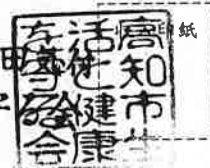 紙
高知市生
活と健康
を守る会